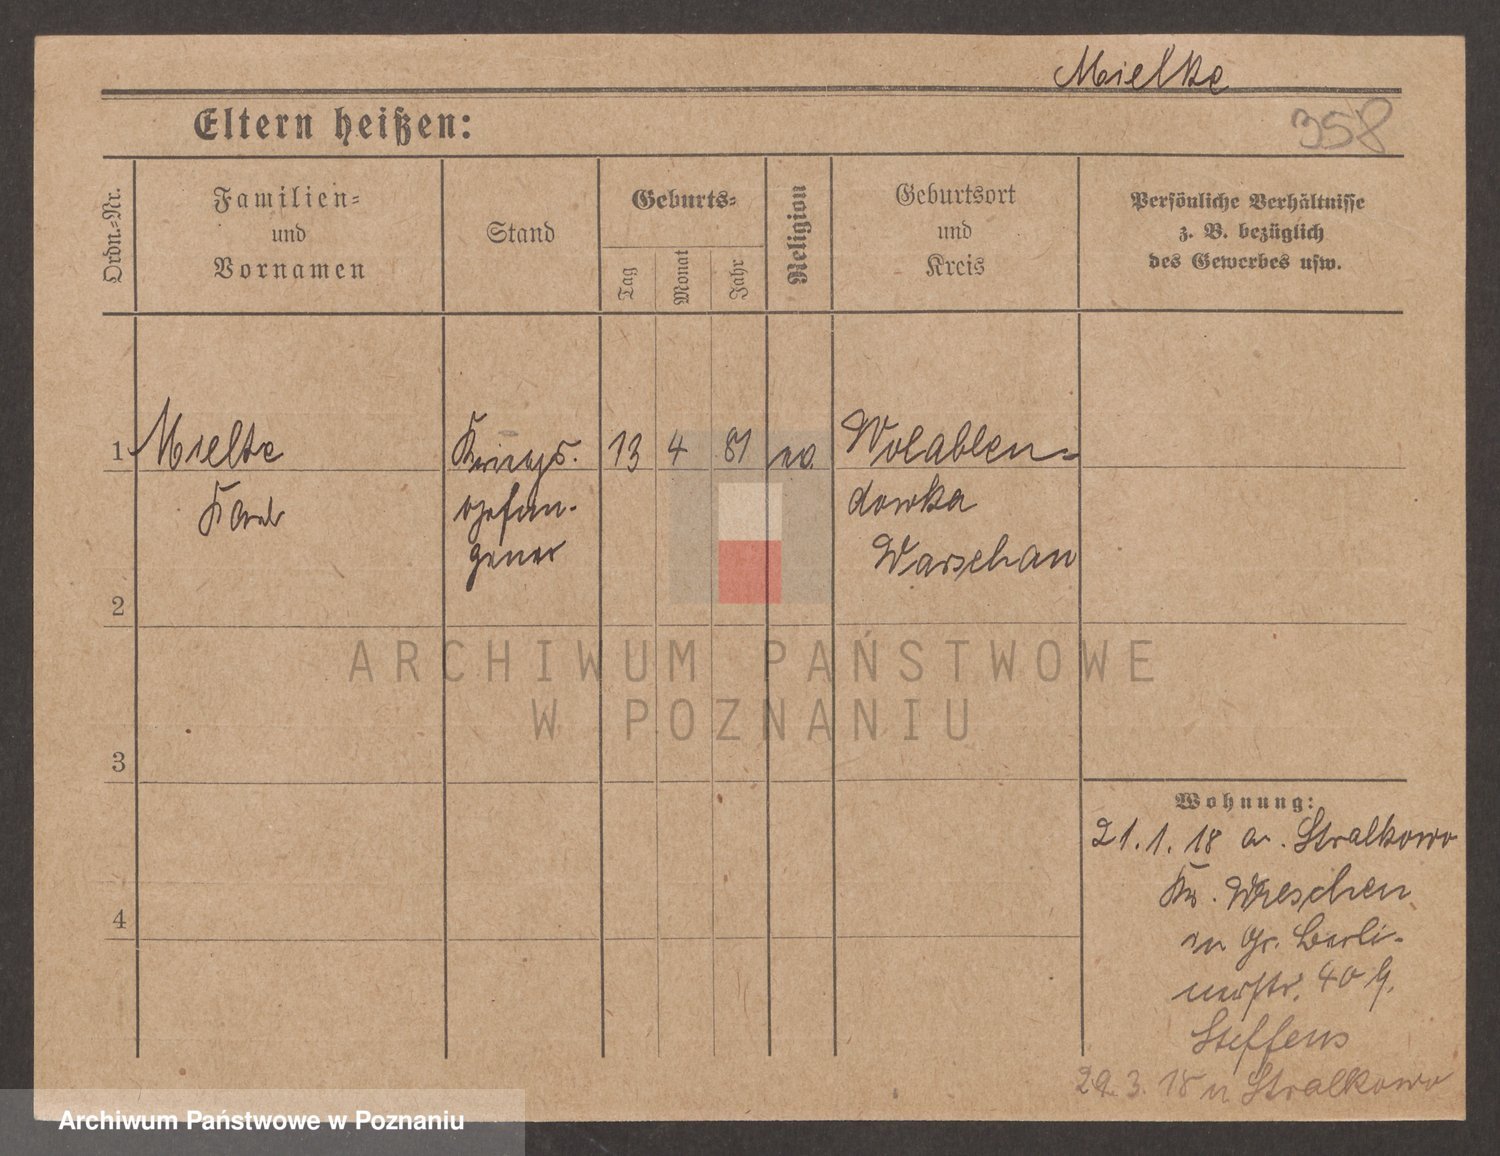 Mielke
Eltern heißen:
358
Ordn.-Nr.
Familien-
und
Vornamen
Stand
Geburts-
Tag
Monat
Jahr
Religion
Geburtsort
und
Kreis
Persönliche Verhältnisse
z. B. bezüglich
des Gewerbes usw.
1 Mielke Kriegs- 13 4 81 ev. Wolablen-
Karl gefan- dowka
gener Warschau
2
ARCHIWUM PAŃSTWOWE
W POZNANIU
3
Wohnung:
21.1.18 a. Stralkowo
Kr. Wreschen
n Gr. Berli-
nerstr. 40 b.
4
Steffens
29.3.18 n Stralkowo
Archiwum Państwowe w Poznaniu